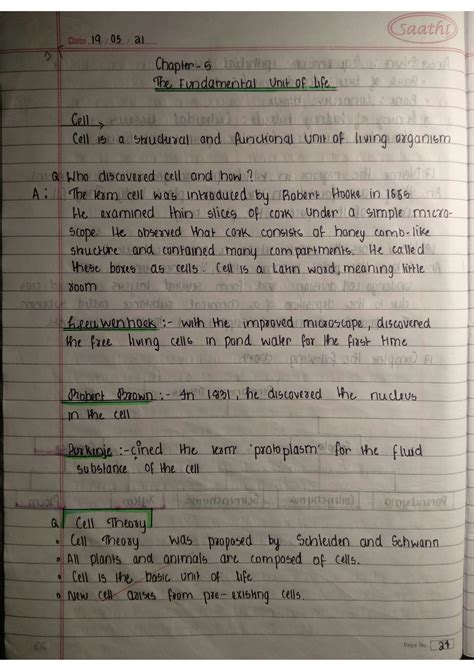 Saathi
Date 19 / 05 / 21
Chapter - 5
The Fundamental Unit of Life
Cell →
Cell is a structural and functional unit of living organism
Q Who discovered cell and how ?
A: The term cell was introduced by Robert Hooke in 1665
He examined thin slices of cork under a simple micro-
scope. He observed that cork consists of honey comb-like
structure and contained many compartments. He called
these boxes as cells. Cell is a Latin word, meaning little
room
Leeuwenhoek :- with the improved microscope, discovered
the free living cells in pond water for the first time
Robert Brown :- In 1831, he discovered the nucleus
in the cell
Purkinje :- coined the term 'protoplasm' for the fluid
substance of the cell
Q Cell Theory
• Cell Theory was proposed by Schleiden and Schwann
• All plants and animals are composed of cells.
• Cell is the basic unit of life
• New cell arises from pre-existing cells.
Page No. 24